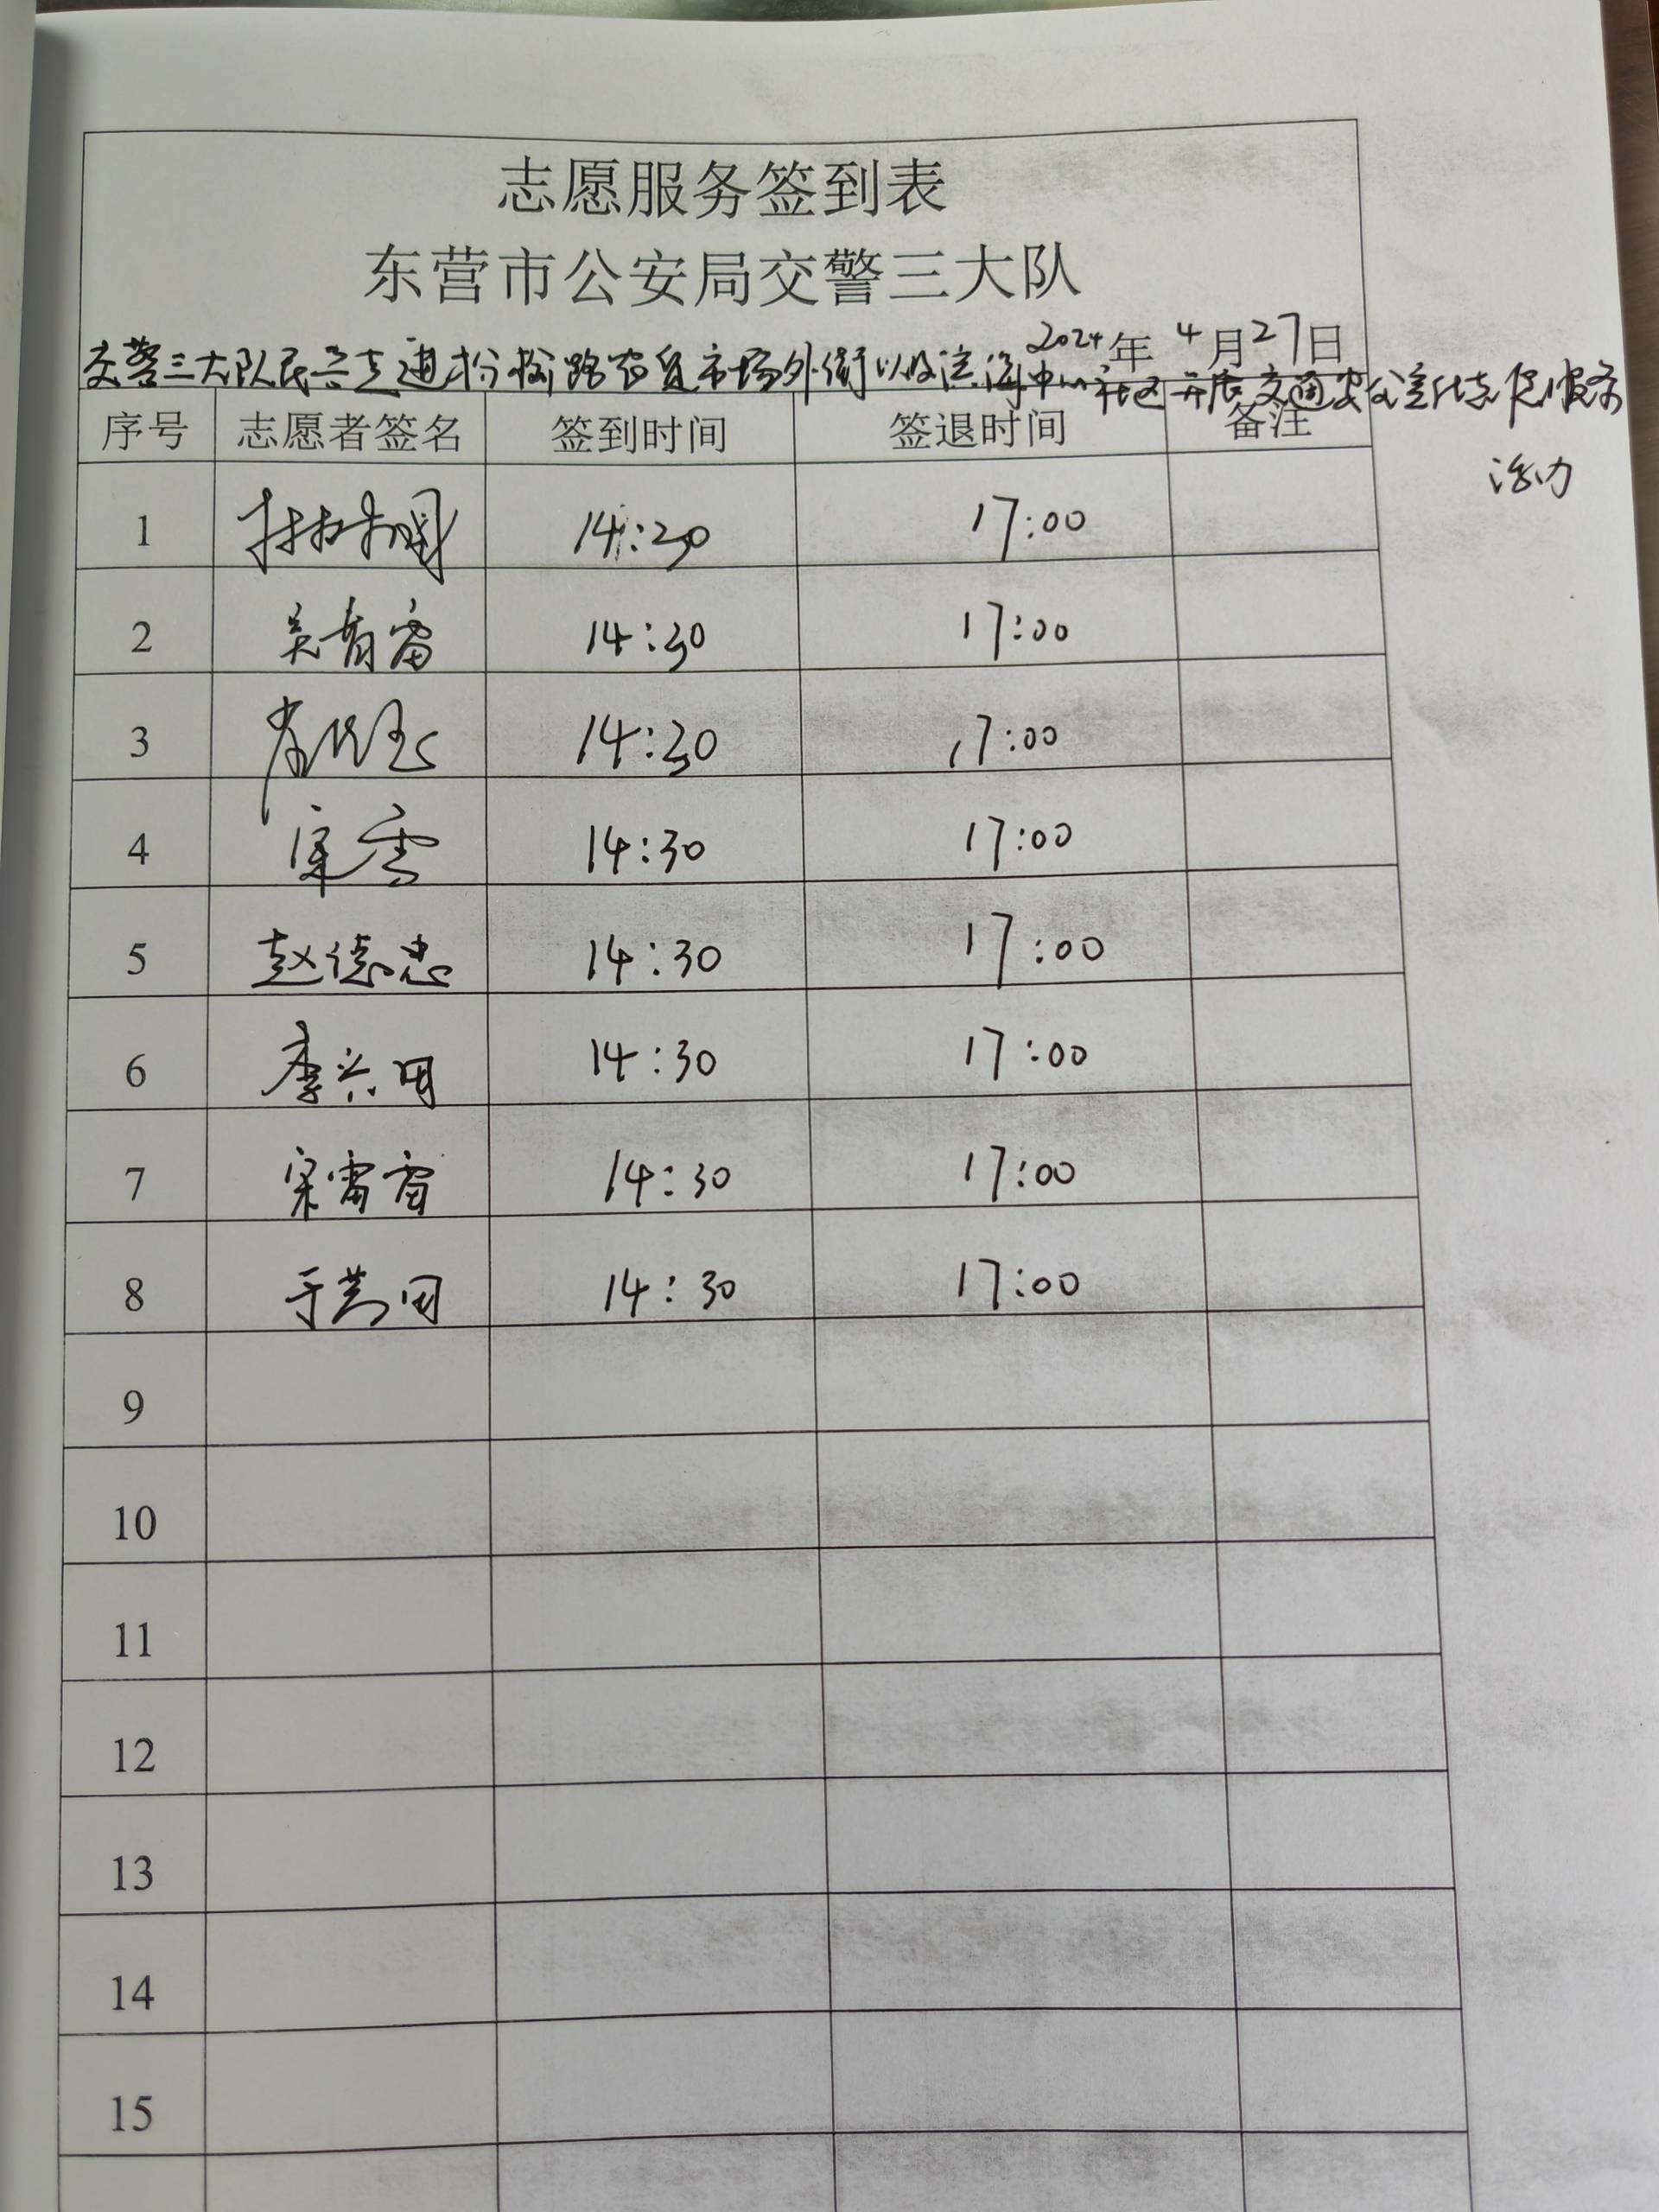 志愿服务签到表
东营市公安局交警三大队
2024年 4月27日
交警三大队民警走进 路农贸市场外街以及 中心社区开展交通安全宣传志愿服务
活动
序号 志愿者签名 签到时间 签退时间 备注
1 14:30 17:00
2 吴青雷 14:30 17:00
3 14:30 17:00
4 宋雪 14:30 17:00
5 赵德忠 14:30 17:00
6 李兴国 14:30 17:00
7 宋雷雷 14:30 17:00
8 于 国 14:30 17:00
9
10
11
12
13
14
15